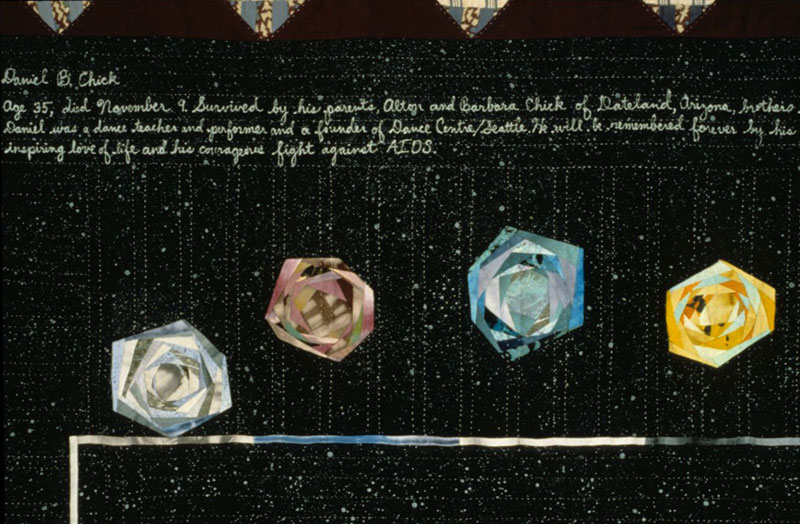 Daniel B. Chick
Age 35, died November 9. Survived by his parents, Alton and Barbara Chick of Dateland, Arizona, brothers
Daniel was a dance teacher and performer and a founder of Dance Centre/Seattle. He will be remembered forever by his
inspiring love of life and his courageous fight against AIDS.